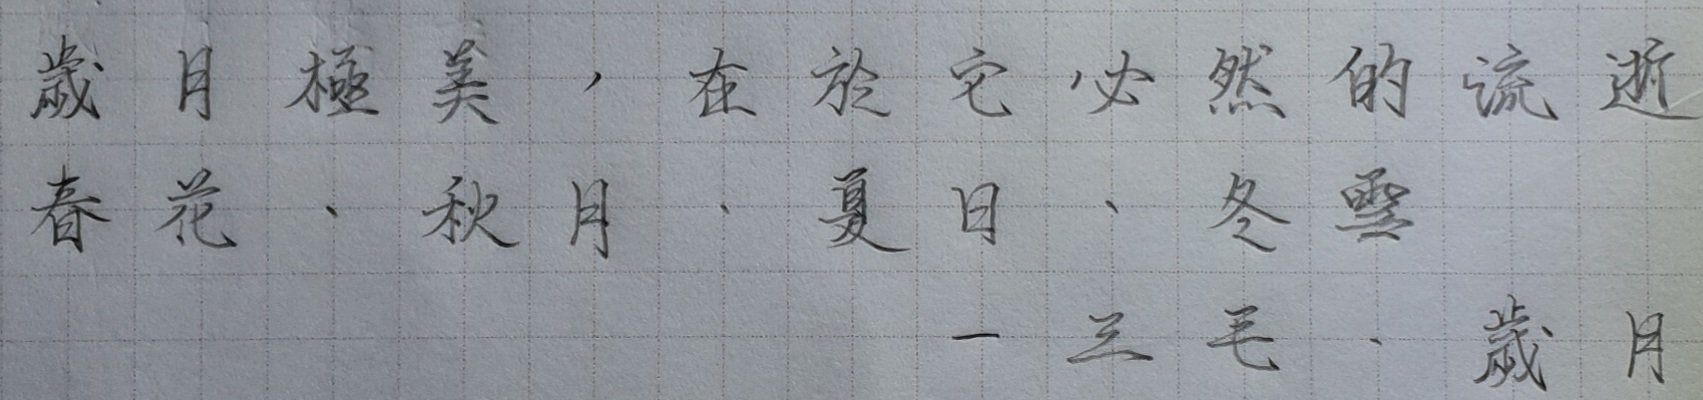 歲月極美，在於它必然的流逝
春花、秋月、夏日、冬雪
—三毛·歲月